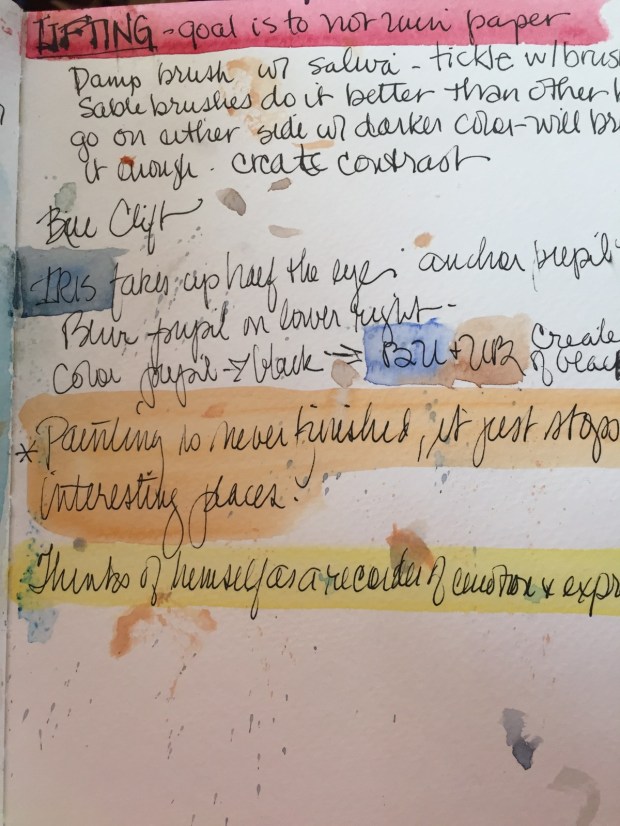 LIFTING - goal is to not ruin paper
Damp brush w/ saliva - tickle w/brus
Sable brushes do it better than other
go on either side w/ darker color - will br
it enough. create contrast
Blue Cliff
IRIS takes up half the eye. anchor pupil
Blur pupil on lower right -
Color pupil → black ⇒ BU + UB Create
of black
* Painting is never finished, it just stops
interesting places.
Thinks of himself as a recorder of emotion & expr